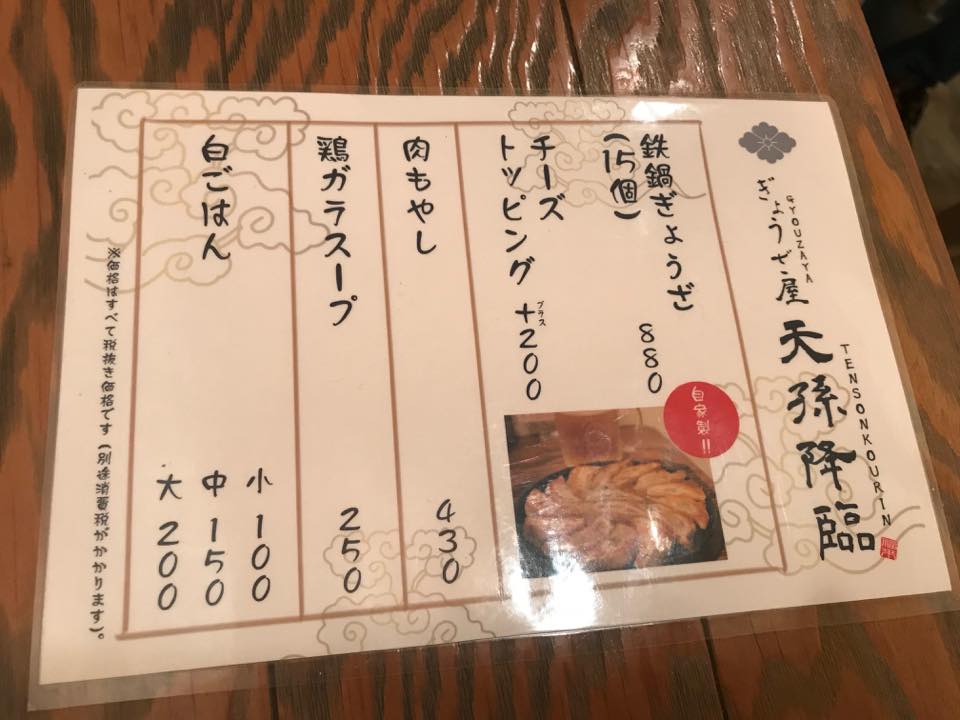 ぎょうざ屋 天孫降臨
GYOUZAYA
TENSONKOURIN
鉄鍋ぎょうざ 880
(15個)
自家製!!
チーズ
トッピング +200
プラス
肉もやし 430
鶏ガラスープ 250
白ごはん
小 100
中 150
大 200
※価格はすべて税抜き価格です(別途消費税がかかります)。